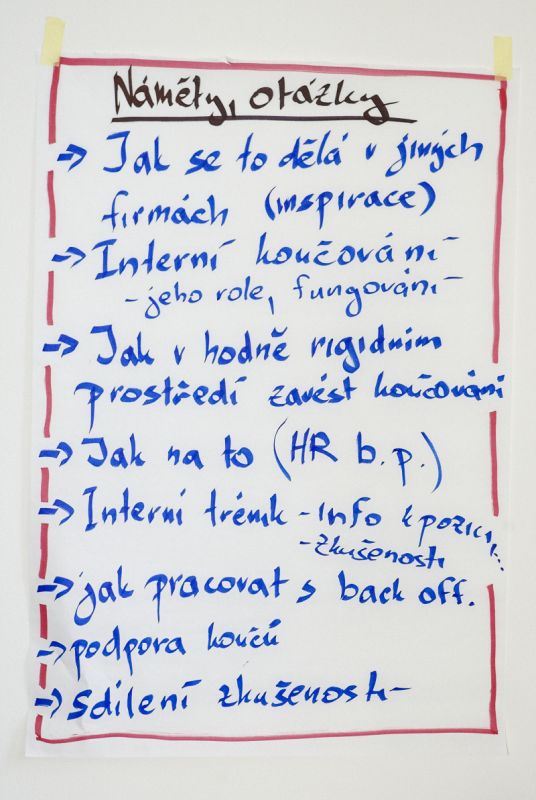 Náměty, otázky
→ Jak se to dělá v jiných
firmách (inspirace)
→ Interní koučování
- jeho role, fungování
→ Jak v hodně rigidním
prostředí zavést koučování
→ Jak na to (HR b.p.)
→ Interní trénik - info k pozici...
- zkušenosti
→ jak pracovat s back off.
→ podpora koučů
→ sdílení zkušeností